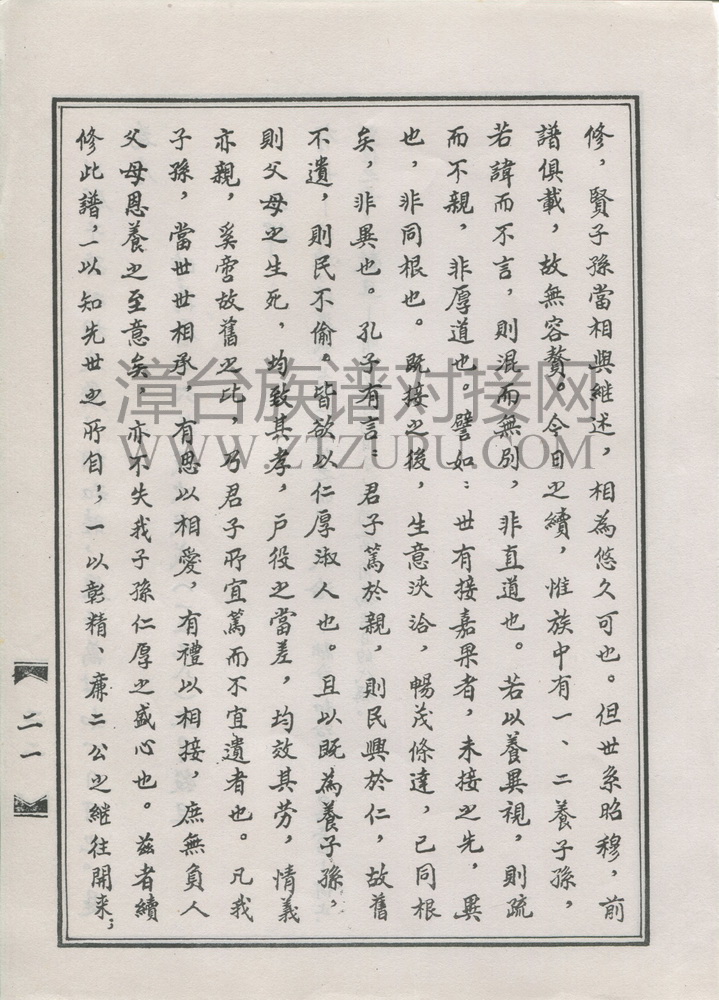 修，賢子孫當相與継述，相為悠久可也。但世系昭穆，前
譜俱載，故無容贅。今日之續，惟族中有一、二養子孫，
若諱而不言，則混而無別，非直道也。若以養異視，則疏
而不親，非厚道也。譬如：世有接嘉果者，未接之先，異
也，非同根也。既接之後，生意浹洽，暢茂條達，已同根
矣，非異也。孔子有言：君子篤於親，則民興於仁，故舊
不遺，則民不偷。皆欲以仁厚淑人也。且以既為養子孫，
則父母之生死，均致其孝，戶役之當差，均效其劳，情義
亦親，奚啻故舊之比，乃君子所宜篤而不宜遺者也。凡我
子孫，當世世相承，有恩以相愛，有禮以相接，庶無負人
父母恩養之至意矣，亦不失我子孫仁厚之盛心也。茲者續
修此譜，一以知先世之所自；一以彰精、廉二公之継往開来；
二一
漳台族谱对接网
WWW.ZTZUPU.COM